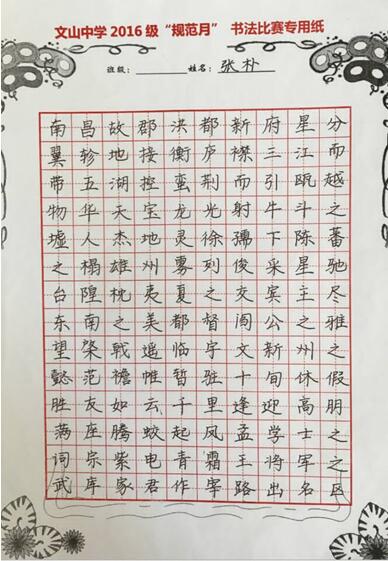 文山中学2016级“规范月” 书法比赛专用纸
班级： 姓名：张朴
南昌故郡洪都新府星分
翼轸地接衡庐襟三江而
带五湖控蛮荆而引瓯越
物华天宝龙光射牛斗之
墟人杰地灵徐孺下陈蕃
之榻雄州雾列俊采星驰
台隍枕夷夏之交宾主尽
东南之美都督阎公之雅
望棨戟遥临宇文新州之
懿范襜帷暂驻十旬休假
胜友如云千里逢迎高朋
满座腾蛟起凤孟学士之
词宗紫电青霜王将军之
武库家君作宰路出名区